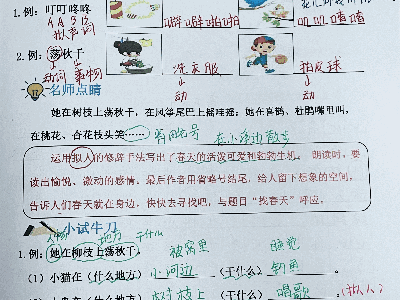 1.例：叮叮咚咚 噼噼啪啪 叽叽喳喳
AABB
拟声词
2.例：荡秋千 洗衣服 拍皮球
动词 事物 动 动
名师点睛
她在树枝上荡秋千，在风筝尾巴上摇哇摇；她在喜鹊、杜鹃嘴里叫，
在桃花、杏花枝头笑…… 省略号 在小溪边散步
运用拟人的修辞手法写出了春天的活泼可爱和勃勃生机。朗读时，要
读出愉悦、激动的感情。最后作者用省略号结尾，给人留下想象的空间，
告诉人们春天就在身边，快快去寻找吧，与题目“找春天”呼应。
小试牛刀
人物 地方 干什么 被窝里 睡觉
1.例：她在柳枝上荡秋千。
（1）小猫在（什么地方）小河边（干什么）钓鱼。
在（什么地方）树枝上（干什么）唱歌。（拟人）